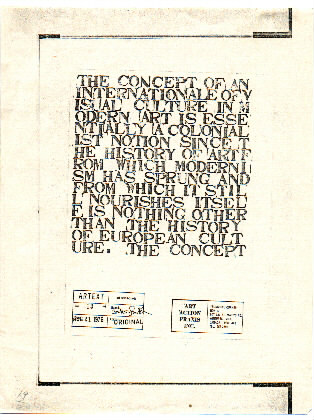 THE CONCEPT OF AN
INTERNATIONALE OF V
ISUAL CULTURE IN M
ODERN ART IS ESSE
NTIALLY A COLONIAL
IST NOTION SINCE T
HE HISTORY OF ART F
ROM WHICH MODERNI
SM HAS SPRUNG AND
FROM WHICH IT STIL
L NOURISHES ITSEL
F IS NOTHING OTHER
THAN THE HISTORY
OF EUROPEAN CULT
URE. THE CONCEPT
ARTEXT
ORIGINAL
ART
PRAXIS
INC.